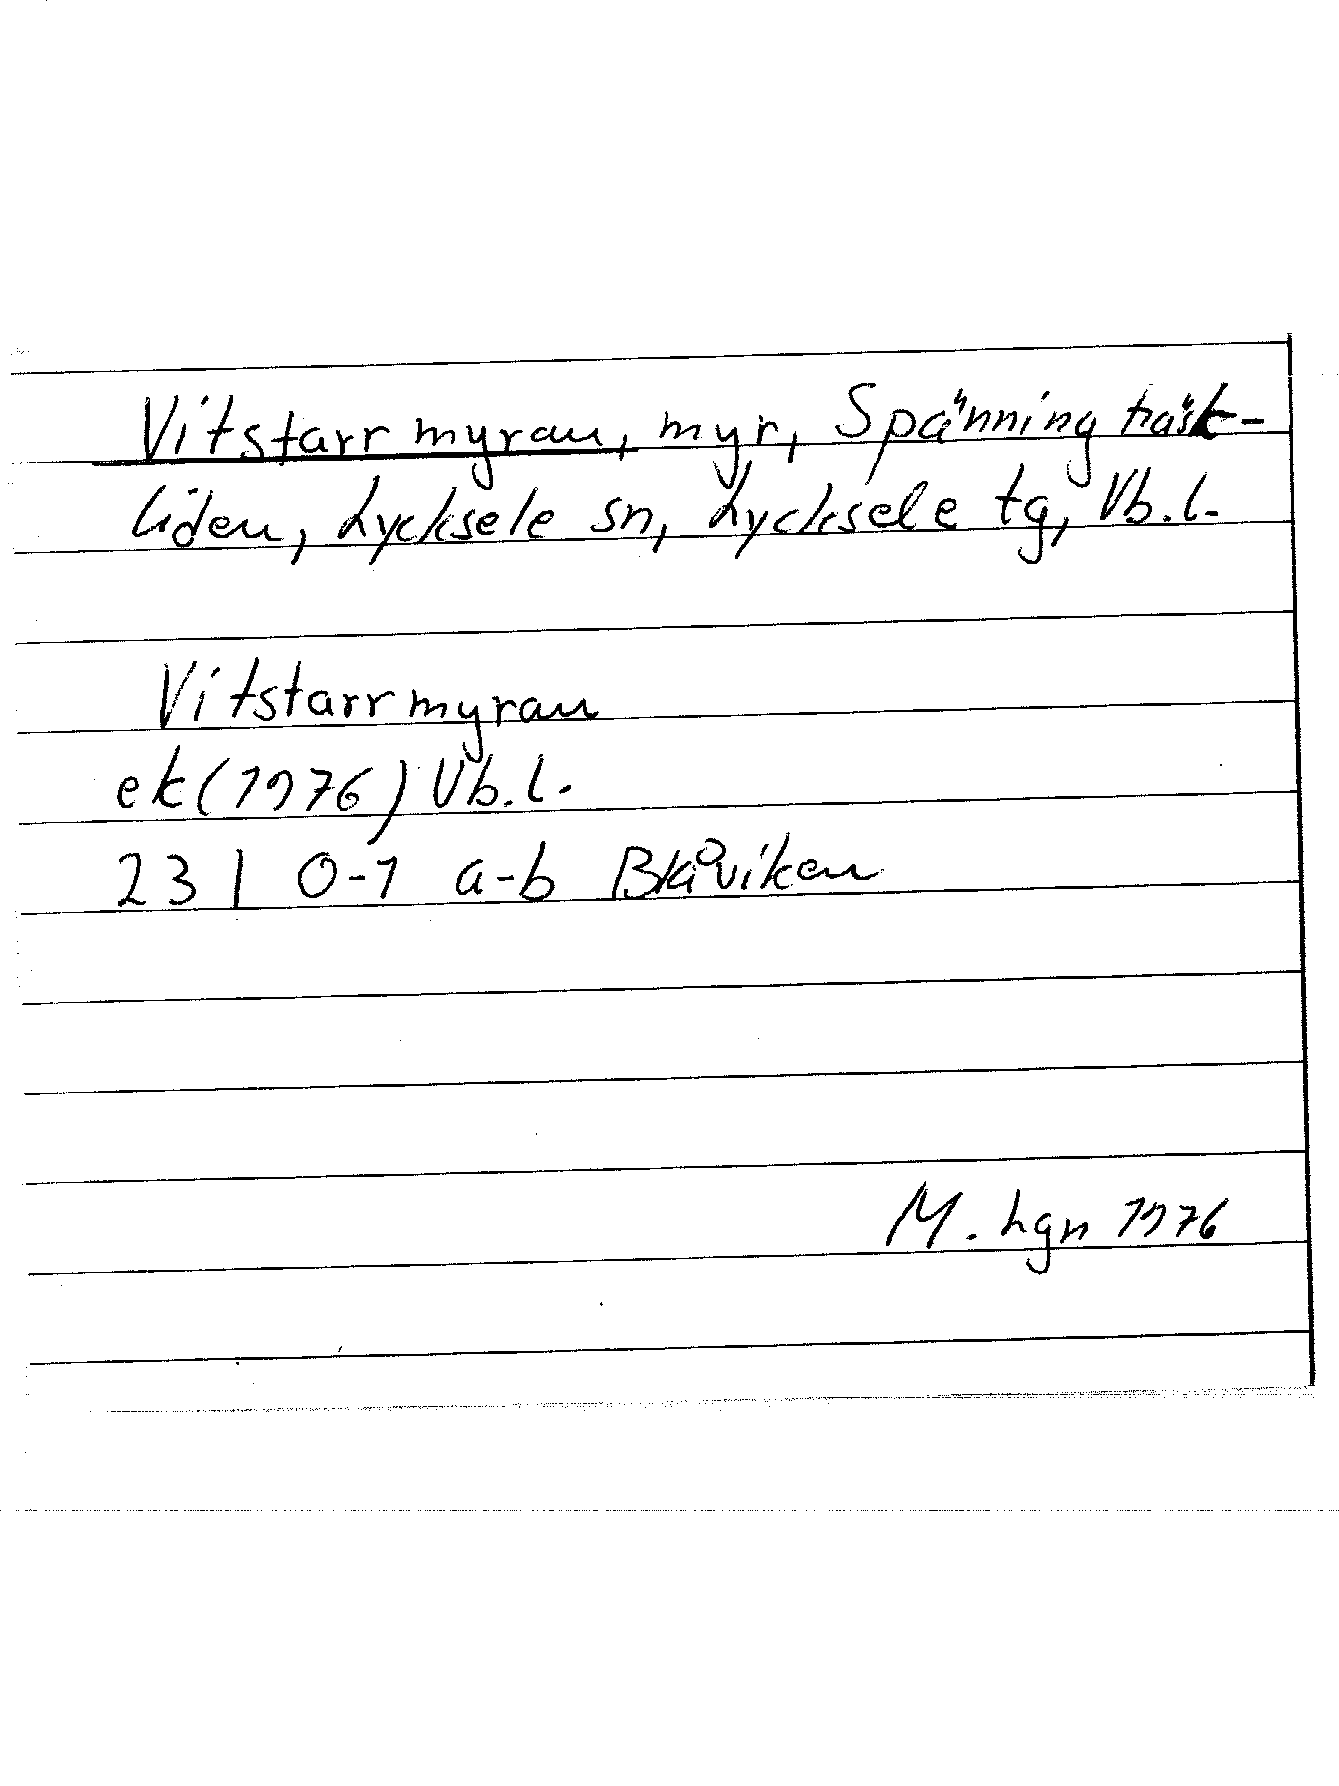 Vitstarrmyran, myr, Spänningträsk-
liden, Lycksele sn, Lycksele tg, Vb.l.
Vitstarrmyran
ek(1976) Vb.l.
23 I 0-1 a-b Blåviken
M. Lgn 1976